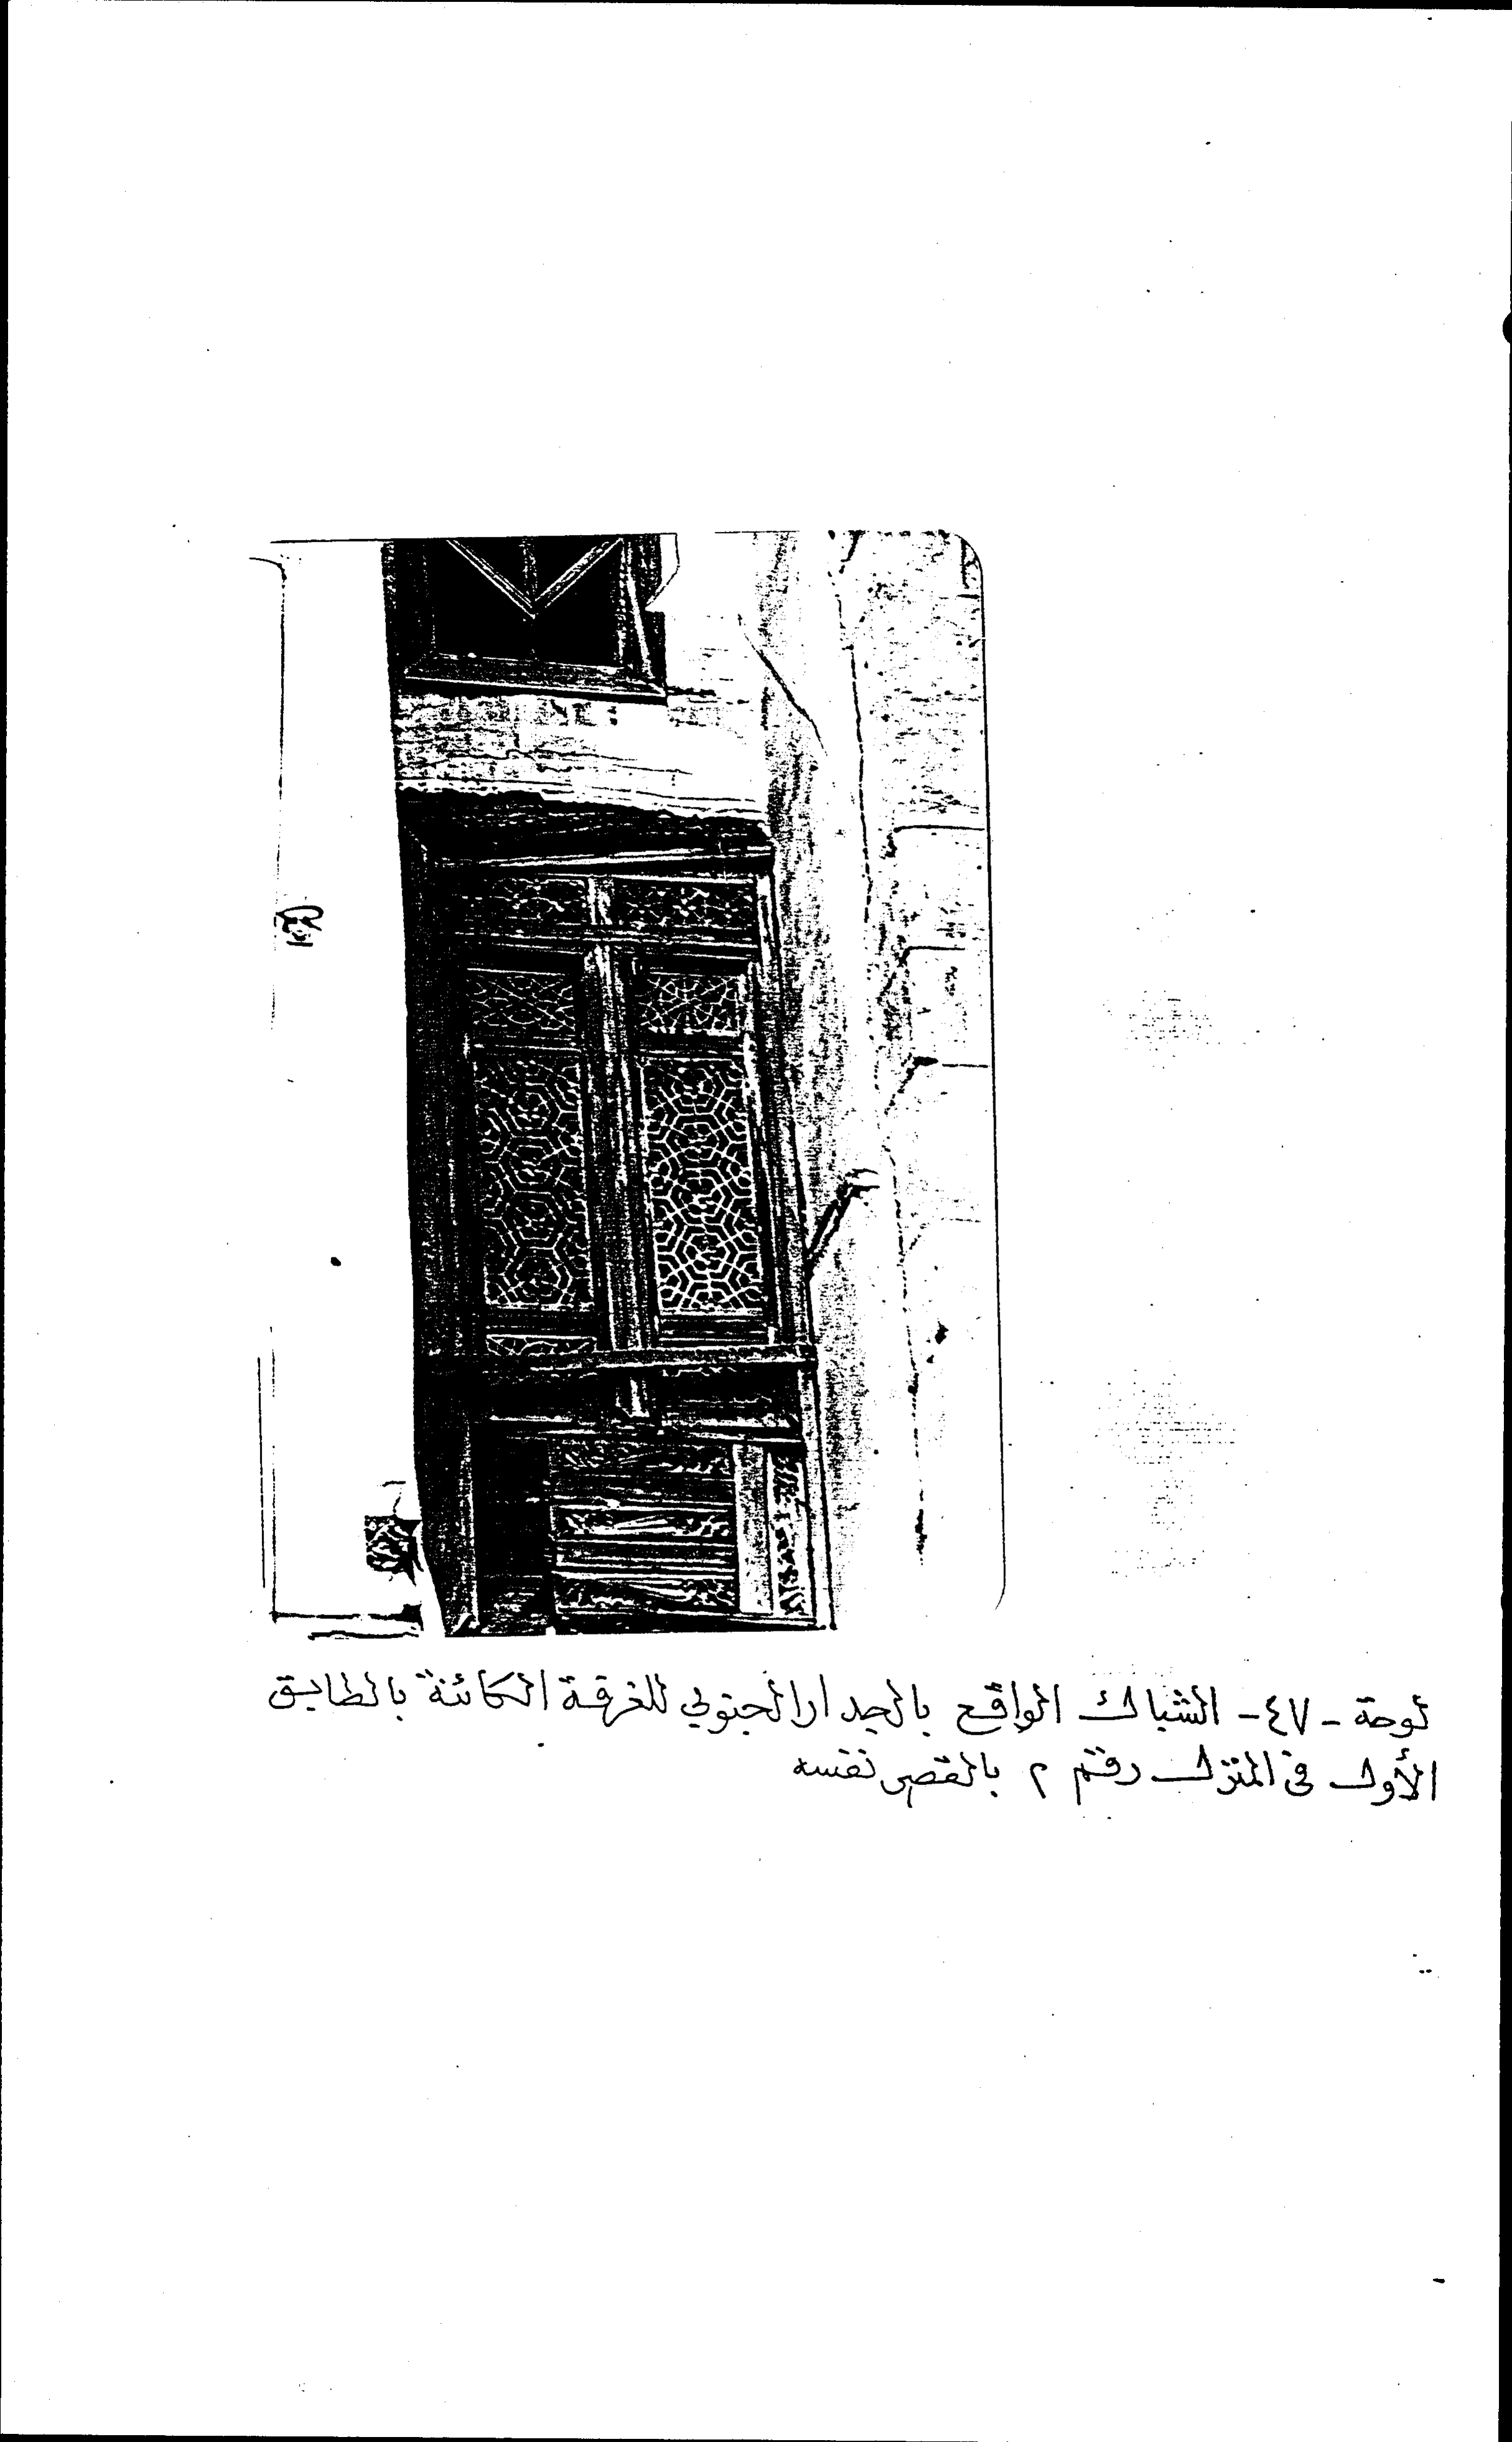 لوحة - ٤٧ - الشباك الواقع بالجدار الجنوبي للغرفة الكائنة بالطابق
الأول في المنزل رقم ٢ بالقصر نفسه